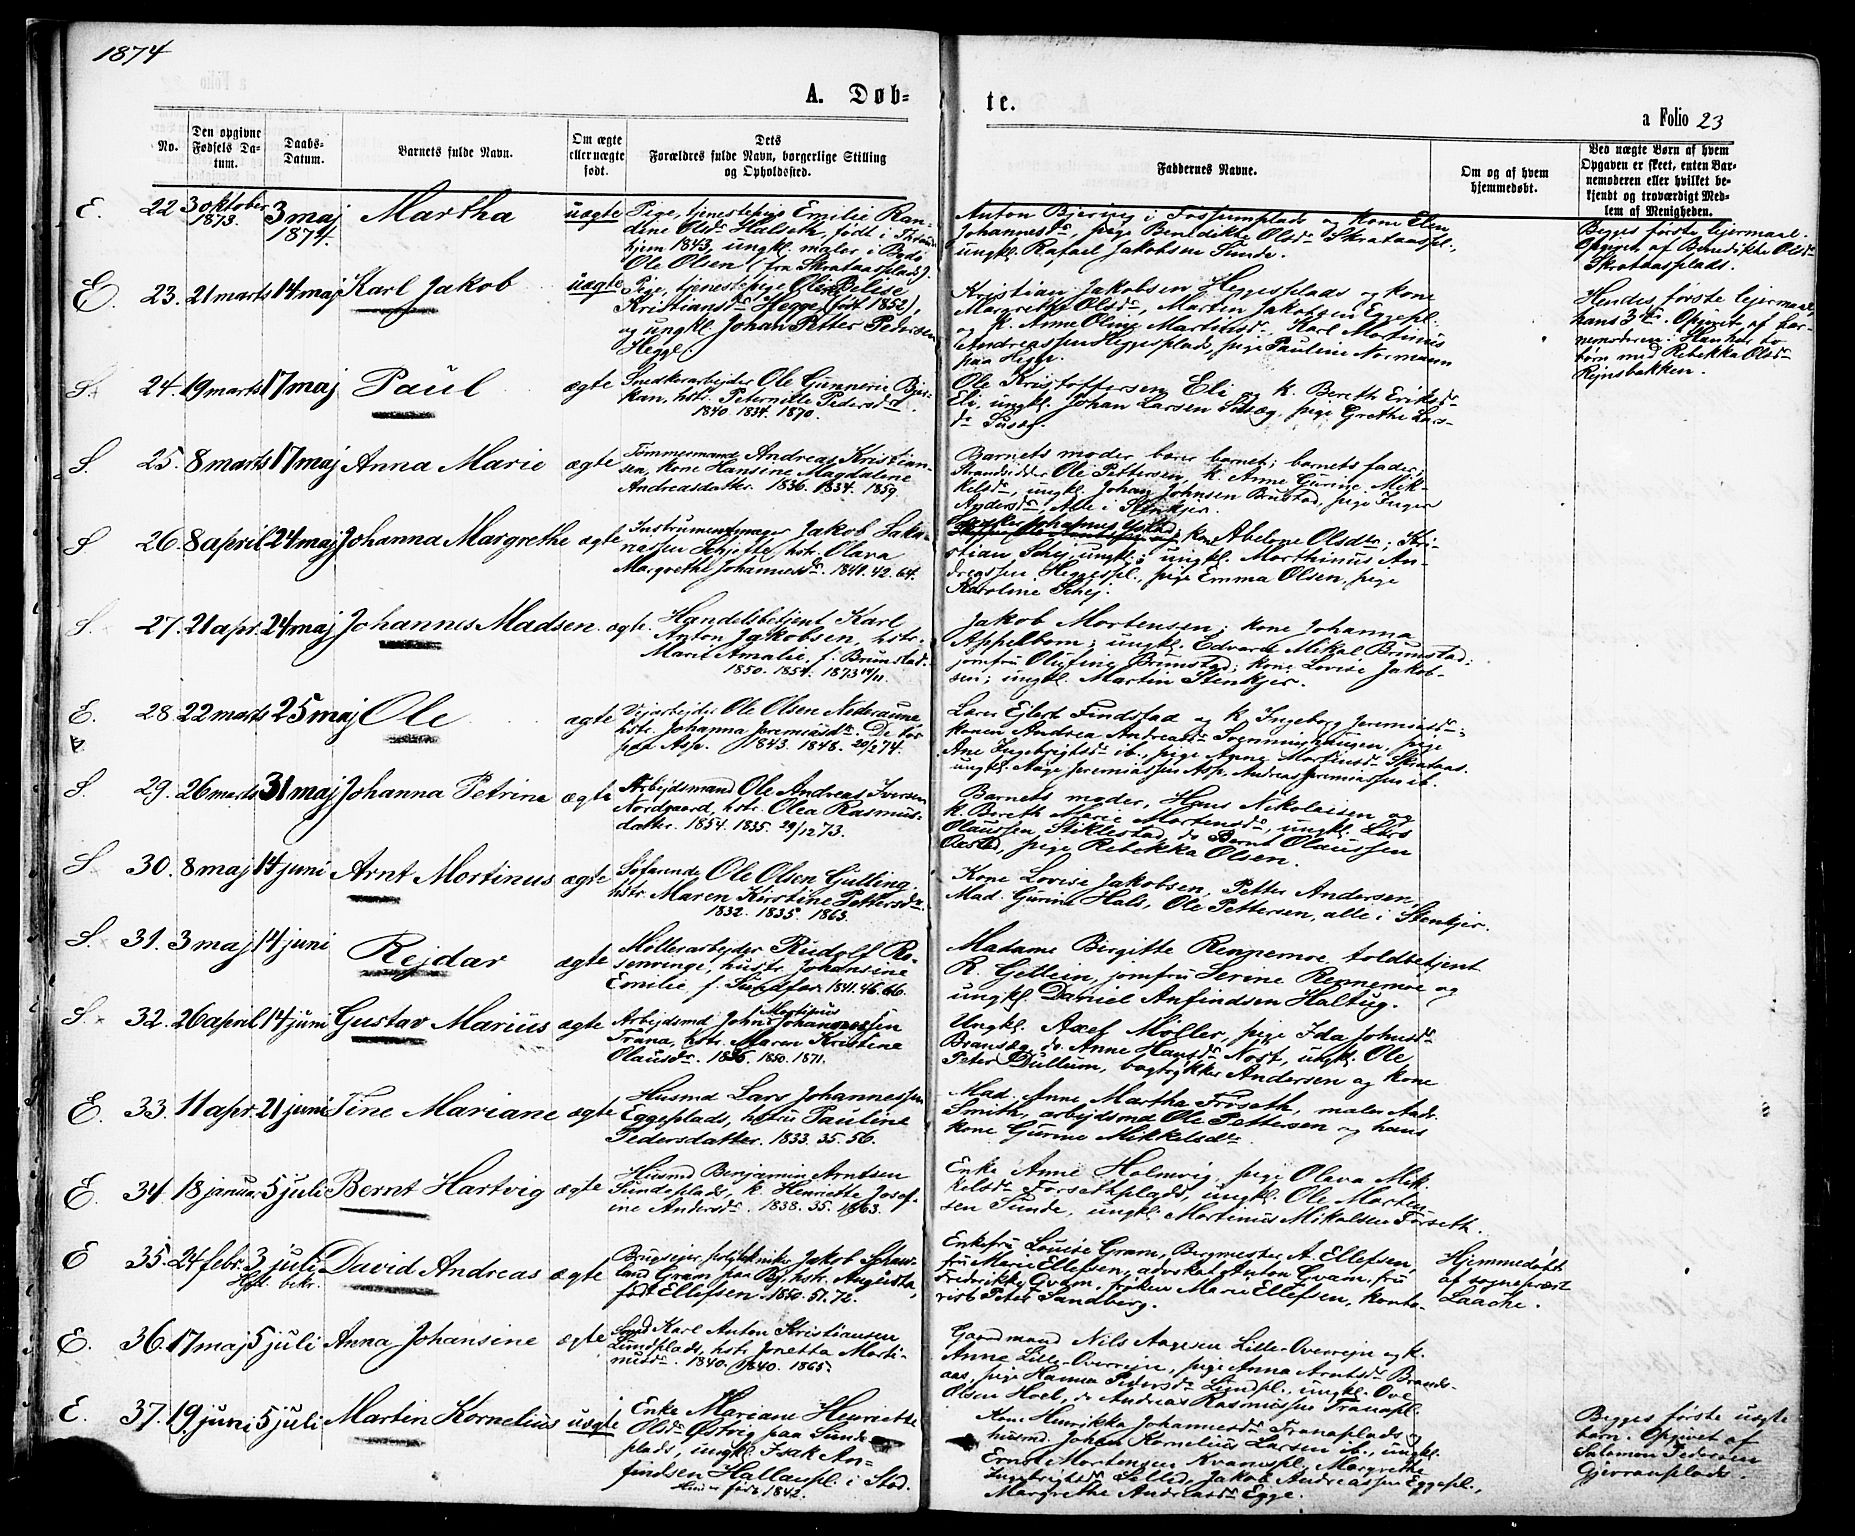 1874
A. Døb-
te.
a Folio 23
No.
Den opgivne
Fødsels Da-
tum.
Daabs-
Datum.
Barnets fulde Navn.
Om ægte
eller uægte
født.
Dets
Forældres fulde Navn, borgerlige Stilling
og Opholdssted.
Faddernes Navne.
Om og af hvem
hjemmedøbt.
Ved uægte Børn af hvem
Opgaven er skeet, enten Bar-
nemoderen eller hvilket be-
kjendt og troværdigt Med-
lem af Menigheden.
E. 22 3 oktober 1873. 3 maj 1874. Martha uægte
Pige, tjenestepige Emilie Ran-
dine Olsdr Halseth, født i Thrond-
hjem 1843, ungkl. maler i Bodø
Ole Olsen (fra Skrataasplads).
Anton Bjering i Fossumplads og kone Elen
Johannesdr, pige Benedikte Olsdr Skrataaspl.,
ungkl. Rafael Jakobsen Sunde.
Begges første lejermaal.
Opgivet af Benedikte Olsdr
Skrataasplads.
E. 23. 21 marts 14 maj Karl Jakob uægte
Pige, tjenestepige Oline Belise
Kristiansdr Hegge (født 1852),
og ungkl. Johan Petter Pedersen
Hegge.
Kristian Jakobsen Heggesplads og kone
Margrethe Olsdr, Martin Jakobsen Eggepl.
og k. Anne Oline Martinusdr, Karl Mortinus
Andreassen Heggesplads, pige Pauline Normann
paa Hegge.
Hendes første lejermaal,
hans 3die. Opgivet af bar-
nemoderen. Han har to
børn med Rebekka Olsdr
Rejnsbakken.
S. 24. 19 marts 17 maj Paul ægte
Snedkerarbejder Ole Gunnerius Bjer-
kan, hstr. Peternille Pedersdr.
1840. 1834. 1870.
Ole Kristoffersen Eli og k. Bereth Eriksdr
Eli, ungkl. Johan Larsen Susæg, pige Grethe Lars-
dr Susæg.
S. 25. 8 marts 17 maj Anna Marie ægte
Tømmermand Andreas Kristian-
sen, kone Hansine Magdalene
Andreasdatter. 1836. 1834. 1859.
Barnets moder bærer barnet; barnets fader;
Strandsidder Ole Pettersen, k. Anne Gurine Mik-
kelsdr, ungkl. Johan Johnsen Brustad, pige Inger
Andersdr, Alle i Stenkjer.
S 26. 8 april 24 maj Johanna Margrethe ægte
Instrumentmager Jakob Zaka-
riassen Schjefte, hstr. Olava
Margrethe Johannesdr. 1840. 42. 64.
Johannes Ystad, kone Abelone Olsdtr; Kri-
stian Schej, ungkl.; ungkl. Marthinus An-
dreassen Heggespl., pige Emma Olsen, pige
Karoline Schej.
S. 27. 21 apr. 24 maj Johannes Madsen. ægte.
Handelsbetjent Karl
Anton Jakobsen, hstr.
Marit Amalie, f. Brunstad.
1850. 1854. 1873 14/11.
Jakob Mortensen; kone Johanna
Appelbom; ungkl. Edvard Mikal Brunstad;
jomfru Olufine Brunstad; kone Lovise Jakob-
sen; ungkl. Martin Stenkjer.
E. 28. 22 marts 25 maj Ole ægte
Vejarbejder Ole Olsen Nederaune,
hstr. Johanna Jeremiasdr. De bor
paa Asp. 1843. 1848. 20/2 74.
Lærer Ejlert Findstad og k. Ingeborg Jeremiasdr;
konen Andrea Andreasdr Svenninghaugen, pige
Ane Ingebrigtsdr ib., pige Agnes Mortinsdr Skrataas.
ungkl. Aage Jeremiassen Asp, Andreas Jeremiassen ib.
S. 29. 26 marts 31 maj Johanna Petrine ægte
Arbejdsmand Ole Andreas Iversen
Nordgaard, hstr. Olea Rasmus-
datter. 1854. 1835. 29/12 73.
Barnets moder, Hans Nikolaisen og
k. Bereth Marie Mortensdr, ungkl. Lars
Olaussen Stiklestad, do Bernt Olaussen
Oxstad, pige Rebekka Olsen.
S. 30. 8 maj 14 juni Arnt Mortinus ægte
Søfarende Ole Olsen Gulling,
hstr. Maren Kirstine Pettersdr.
1832. 1835. 1863.
Kone Lovise Jakobsen, Petter Andersen,
Mad. Gurine Hals, Ole Pettersen, alle i Stenkjer.
S. 31. 3 maj 14 juni Rejdar ægte
Møllerarbejder Rudolf Ro-
senvinge, hustr. Johansine
Emilie, f. Sundfær. 1841. 46. 66.
Madame Birgitte Rennemoe, toldbetjent
R. Getlein, jomfru Serine Rennemoe og
ungkl. Daniel Anfindsen Haltug.
S. 32. 26 april 14 juni Gustav Marius ægte
Arbejdsmd John Mortinus Johannessen
Trana, hstr. Maren Kristine
Olausdr. 1856. 1850. 1871.
Ungkl. Axel Møller, pige Ida Johnsdr
Bransæg, do. Anne Hansdr Nost, ungkl. Ole
Peter Dullum, bogtrykker Andersen og kone
E. 33. 11 apr. 21 juni Tine Mariane ægte
Husmd Lars Johannessen
Eggeplads, hstru Pauline
Pedersdatter. 1833. 35. 56.
Mad. Anne Martha Forseth, maler Andr.
Smith, arbejdsmd Ole Pettersen og hans
kone Gurine Mikkelsdtr.
E. 34. 18 januar 5 juli Bernt Hartvig ægte
Husmd Benjamin Arntsen
Sundeplads, k. Henriette Josef-
ine Andersdr. 1838. 35. 1863.
Enke Anne Holmvig, pige Olava Mik-
kelsdr Forsethplads, ungkl. Ole Morten-
sen Sunde, ungkl. Martinus Mikalsen Forseth.
E 35. 24 febr. 3 juli David Andreas ægte
Hjd. bekr.
Brugsejer, polytekniker Jakob Schav-
land Gram paa By, hstr. Augusta,
født Ellefsen. 1840. 51. 72.
Enkefru Louise Gram, Bergmester A. Ellefsen,
fru Marie Ellefsen, advokat Anton Gram, fru
Fredrikke Gram, frøken Marie Ellefsen, konto-
rist Peter Sandberg.
Hjemmedøbt
af sognepræst
Laache.
E. 36. 17 maj 5 juli Anna Johansine ægte
Smd Karl Anton Kristiansen
Lundplads, hstr. Jonetta Morti-
nusdr. 1840. 1840. 1865.
Gaardmand Nils Aagesen Lille-Overrejn og k.
Anne Lille-Overrejn, pige Anna Arntsdr Brande-
aas, pige Hanna Pedersdr Lundpl., ungkl. Ove
Olsen Hoel, do Andreas Rasmussen Tranapl.
E. 37. 19 juni 5 juli Martin Kornelius uægte
Enke Mariane Henriette
Olsdr Østvig paa Sunde-
plads, ungkl. Isak An-
findsen Hallanpl. i Stod.
Hun er født 1842.
Kone Henrikka Johannesdr Tranaplads og
husmd. Johan Kornelius Larsen ib., ungkl.
Ernst Mortensen Kvamspl., Margrethe
Ingebrigtsdr Selled, Jakob Andreassen Eggepl.,
Margrethe Andreasdr Egge.
Begges første uægte
barn. Opgivet af
Salomon Pedersen
Gjevranplads.